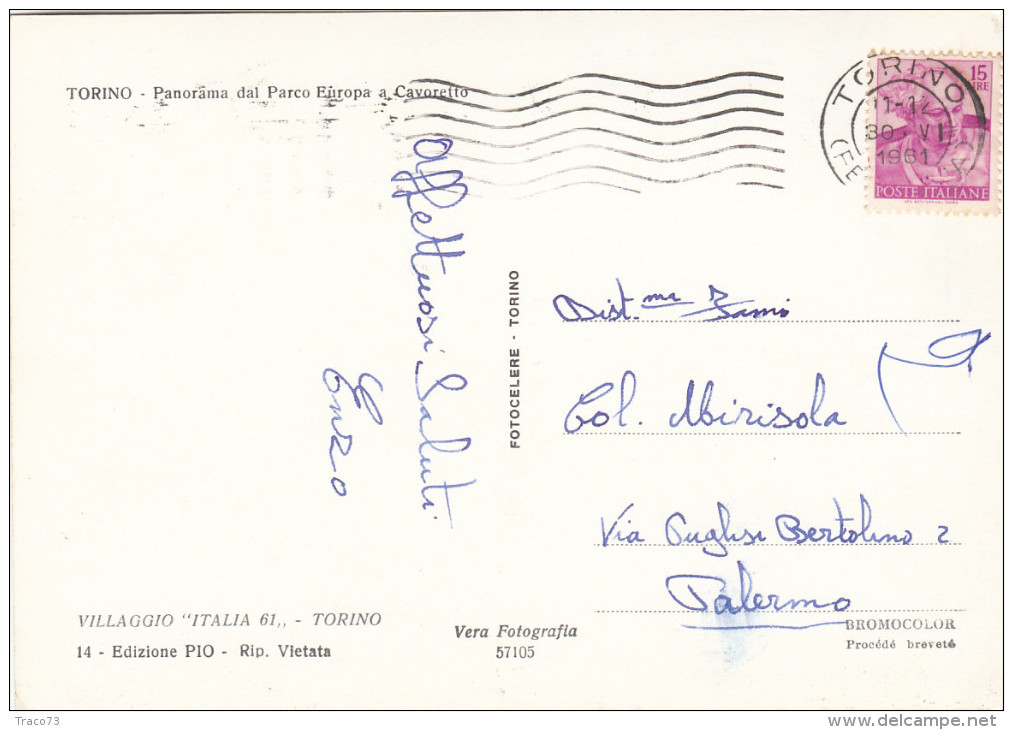 TORINO - Panorama dal Parco Europa a Cavoretto
TORINO
11-12
30 VI
1961
(FE
15
LIRE
POSTE ITALIANE
Affettuosi Saluti
Enzo
FOTOCELERE - TORINO
Dist.ma Fam.
Col. Mirisola
Via Puglisi Bertolino 2
Palermo
VILLAGGIO "ITALIA 61,, - TORINO
14 - Edizione PIO - Rip. Vietata
Vera Fotografia
57105
BROMOCOLOR
Procédé breveté
Traco73
delcampe.net